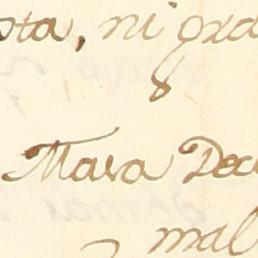 ota, ni gra
Mara Dec
mal